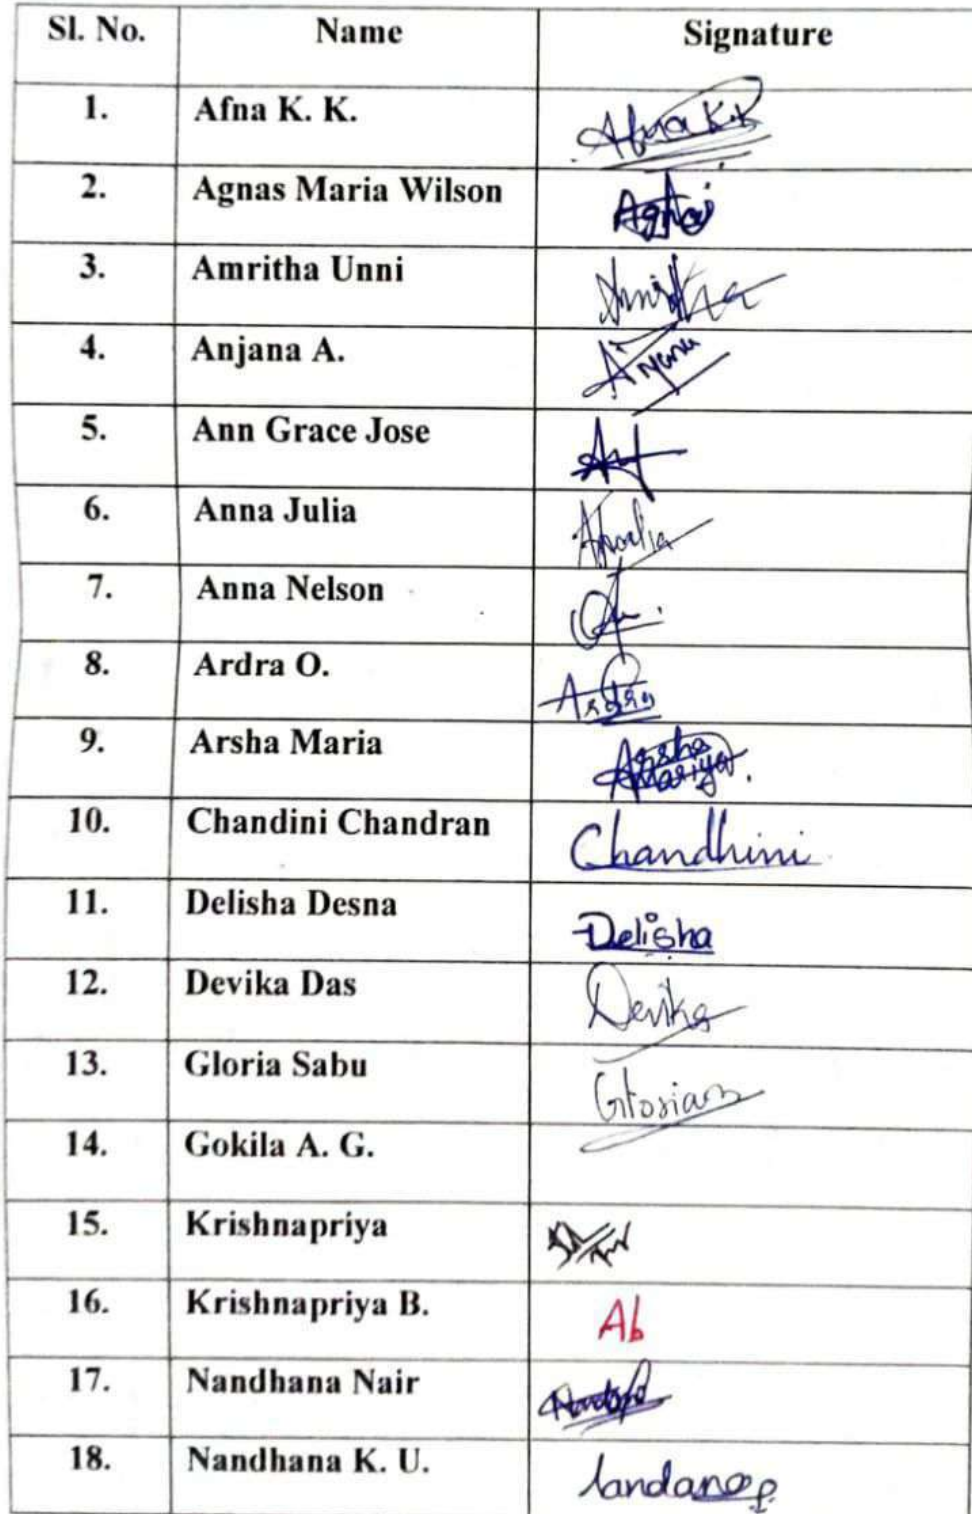 Sl. No. Name Signature
1. Afna K. K. Afna K.K
2. Agnas Maria Wilson
3. Amritha Unni Amritha
4. Anjana A. Anjana
5. Ann Grace Jose
6. Anna Julia
7. Anna Nelson
8. Ardra O. Ardra
9. Arsha Maria Arsha Mariya.
10. Chandini Chandran Chandhini
11. Delisha Desna Delisha
12. Devika Das Devika
13. Gloria Sabu
14. Gokila A. G.
15. Krishnapriya
16. Krishnapriya B. Ab
17. Nandhana Nair
18. Nandhana K. U.